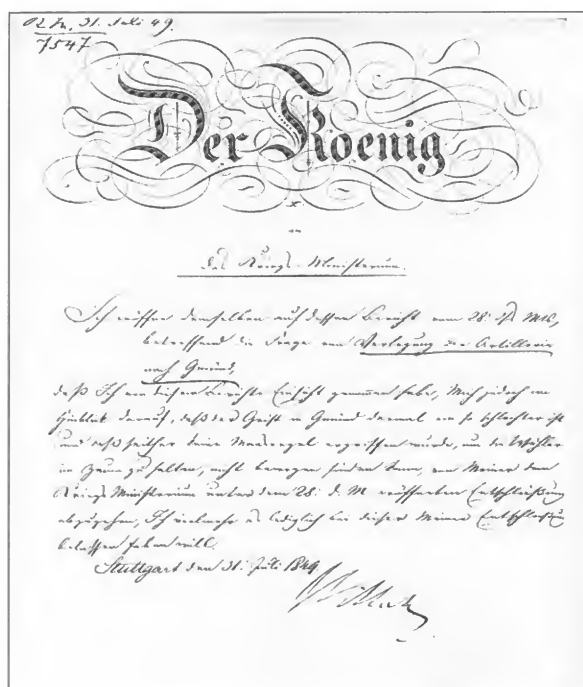 31. Juli 49.
7547
Der Koenig
an
das Kriegs-Ministerium.
Ich eröffne demselben auf dessen Bericht vom 28: ds. Mts.,
betreffend die Frage von Verlegung der Artillerie
nach Gmünd,
daß Ich von diesem Berichte Einsicht genommen habe, Mich jedoch im
Hinblick darauf, daß der Geist in Gmünd dermal ein so schlechter ist
und daß seither keine Maasregel ergriffen wurde, um die Wühler
im Zaum zu halten, nicht bewogen finden kann, von Meiner dem
Kriegs Ministerium unter dem 28: d. M. eröffneten Entschließung
abzugehen, Ich vielmehr es lediglich bei dieser Meiner Entschließung
belassen haben will.
Stuttgart den 31. Juli 1849.